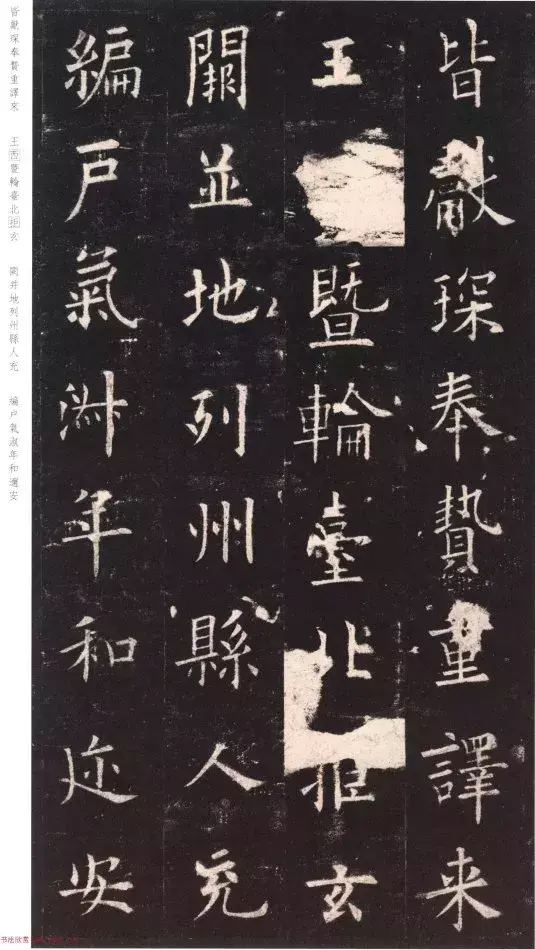 皆獻琛奉贄重譯来
王暨輪臺北拒玄
闕並地列州縣人充
編戶氣淑年和迩安
皆獻琛奉贄重譯來 王西暨輪臺北拒玄 闕并地列州縣人充 編戶氣淑年和邇安
书法欣赏